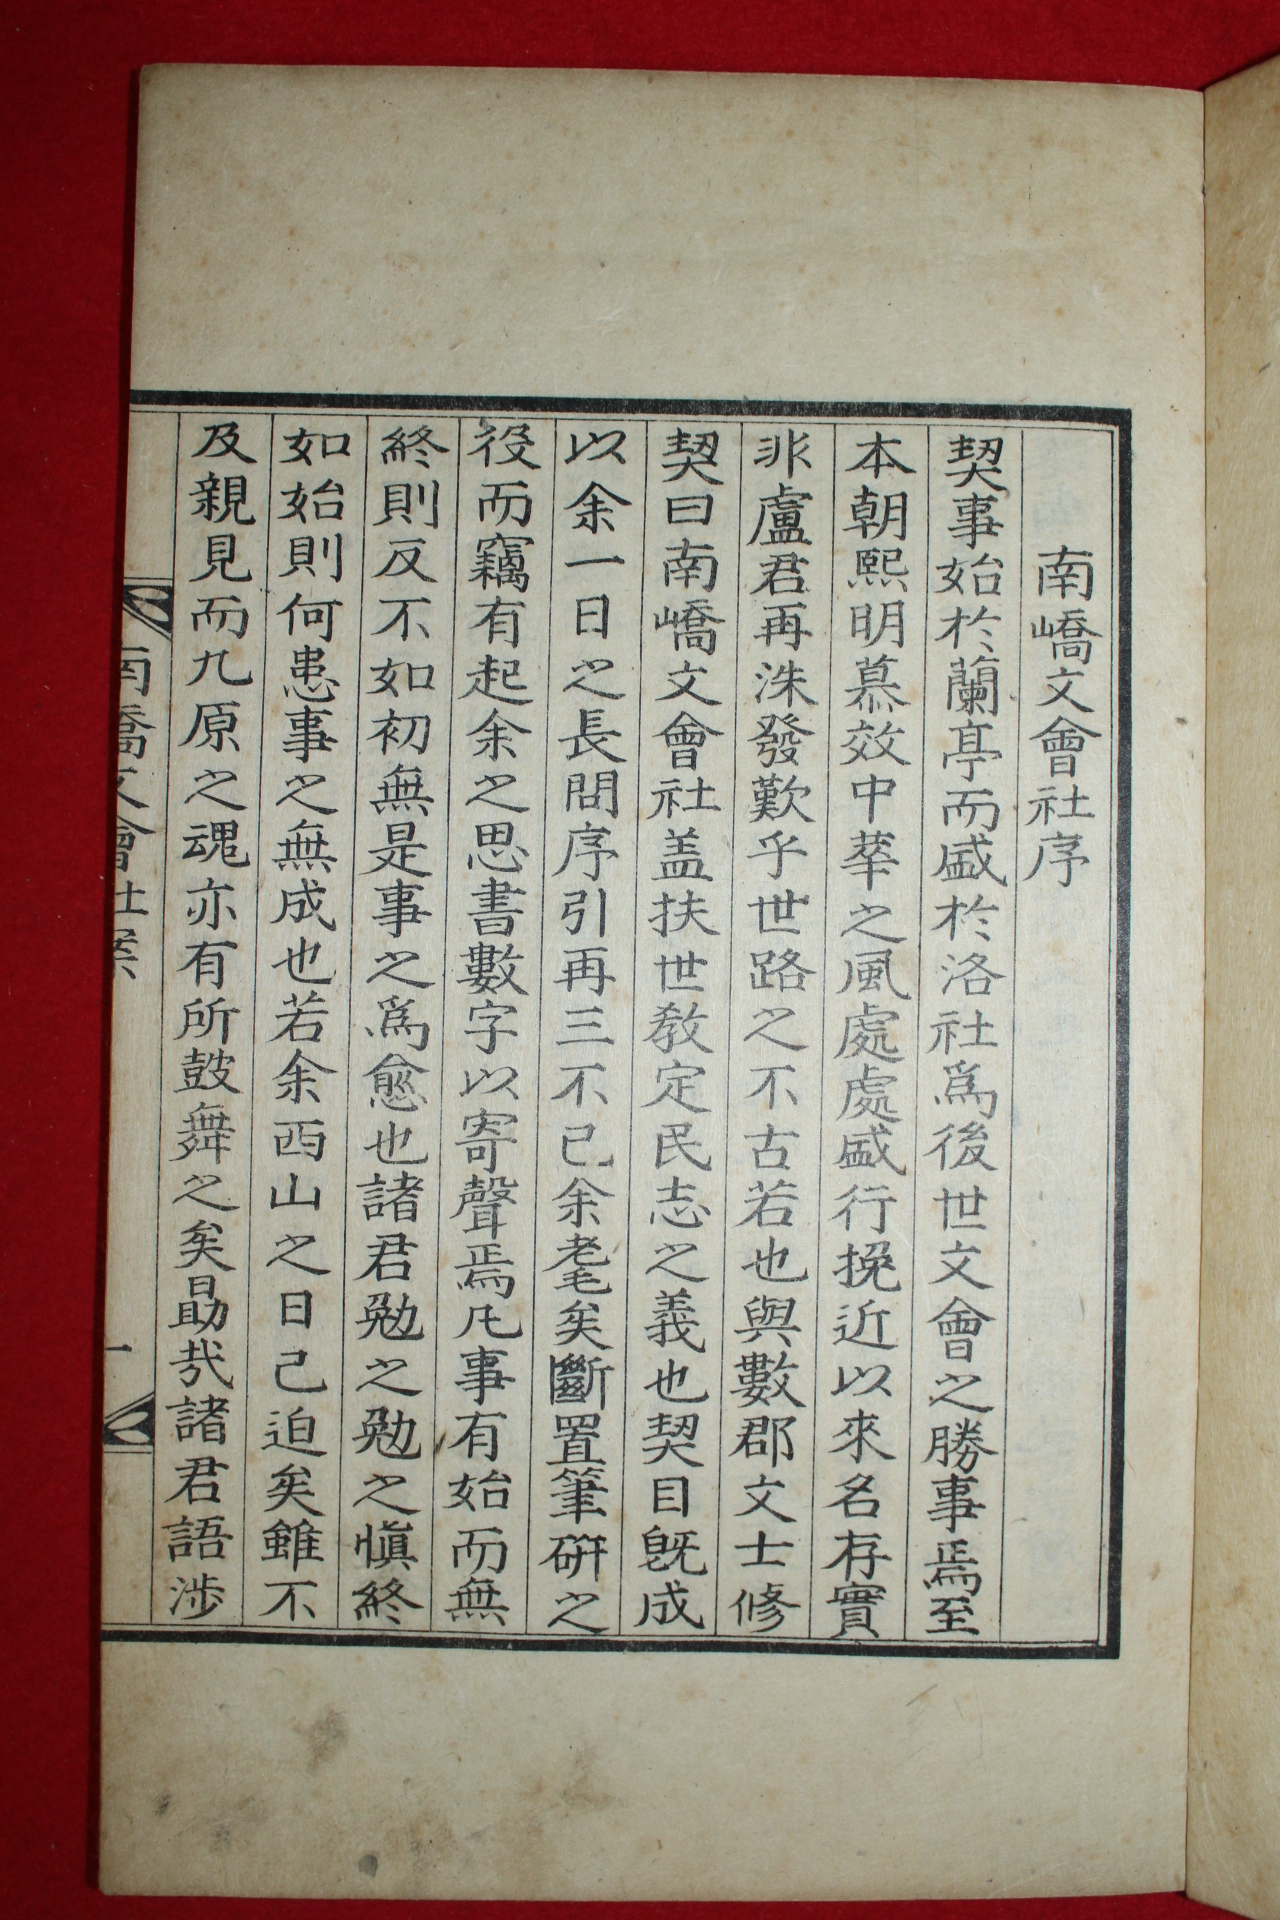 南嶠文會社序
契事始於蘭亭而盛於洛社爲後世文會之勝事焉至
本朝熙明慕效中華之風處處盛行挽近以來名存實
非盧君再洙發歎乎世路之不古若也與數郡文士修
契曰南嶠文會社盖扶世敎定民志之義也契目旣成
以余一日之長問序引再三不已余耄矣斷置筆硏之
役而竊有起余之思書數字以寄聲焉凡事有始而無
終則反不如初無是事之爲愈也諸君勉之勉之愼終
如始則何患事之無成也若余西山之日已迫矣雖不
及親見而九原之魂亦有所鼓舞之矣勖哉諸君語涉
南嶠文會社案 一